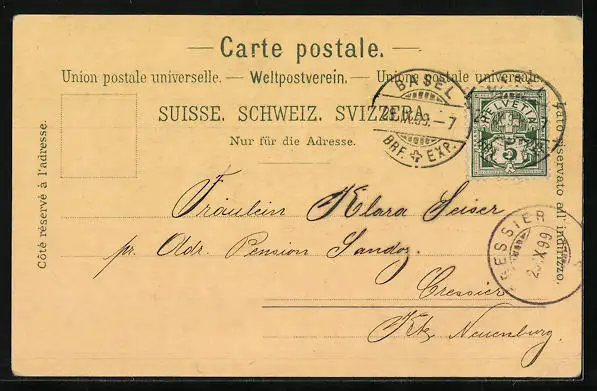 Carte postale.
Union postale universelle. — Weltpostverein. — Unione postale universale.
SUISSE. SCHWEIZ. SVIZZERA.
Nur für die Adresse.
Côté réservé à l'adresse.
Lato riservato all' indirizzo.
BASEL
IX.99.-7
BRF. EXP.
HELVETIA
5
Fräulein Klara Seiser
pr. Adr. Pension Sandoz
Cressier
Kt. Neuenburg.
CRESSIER
X 99